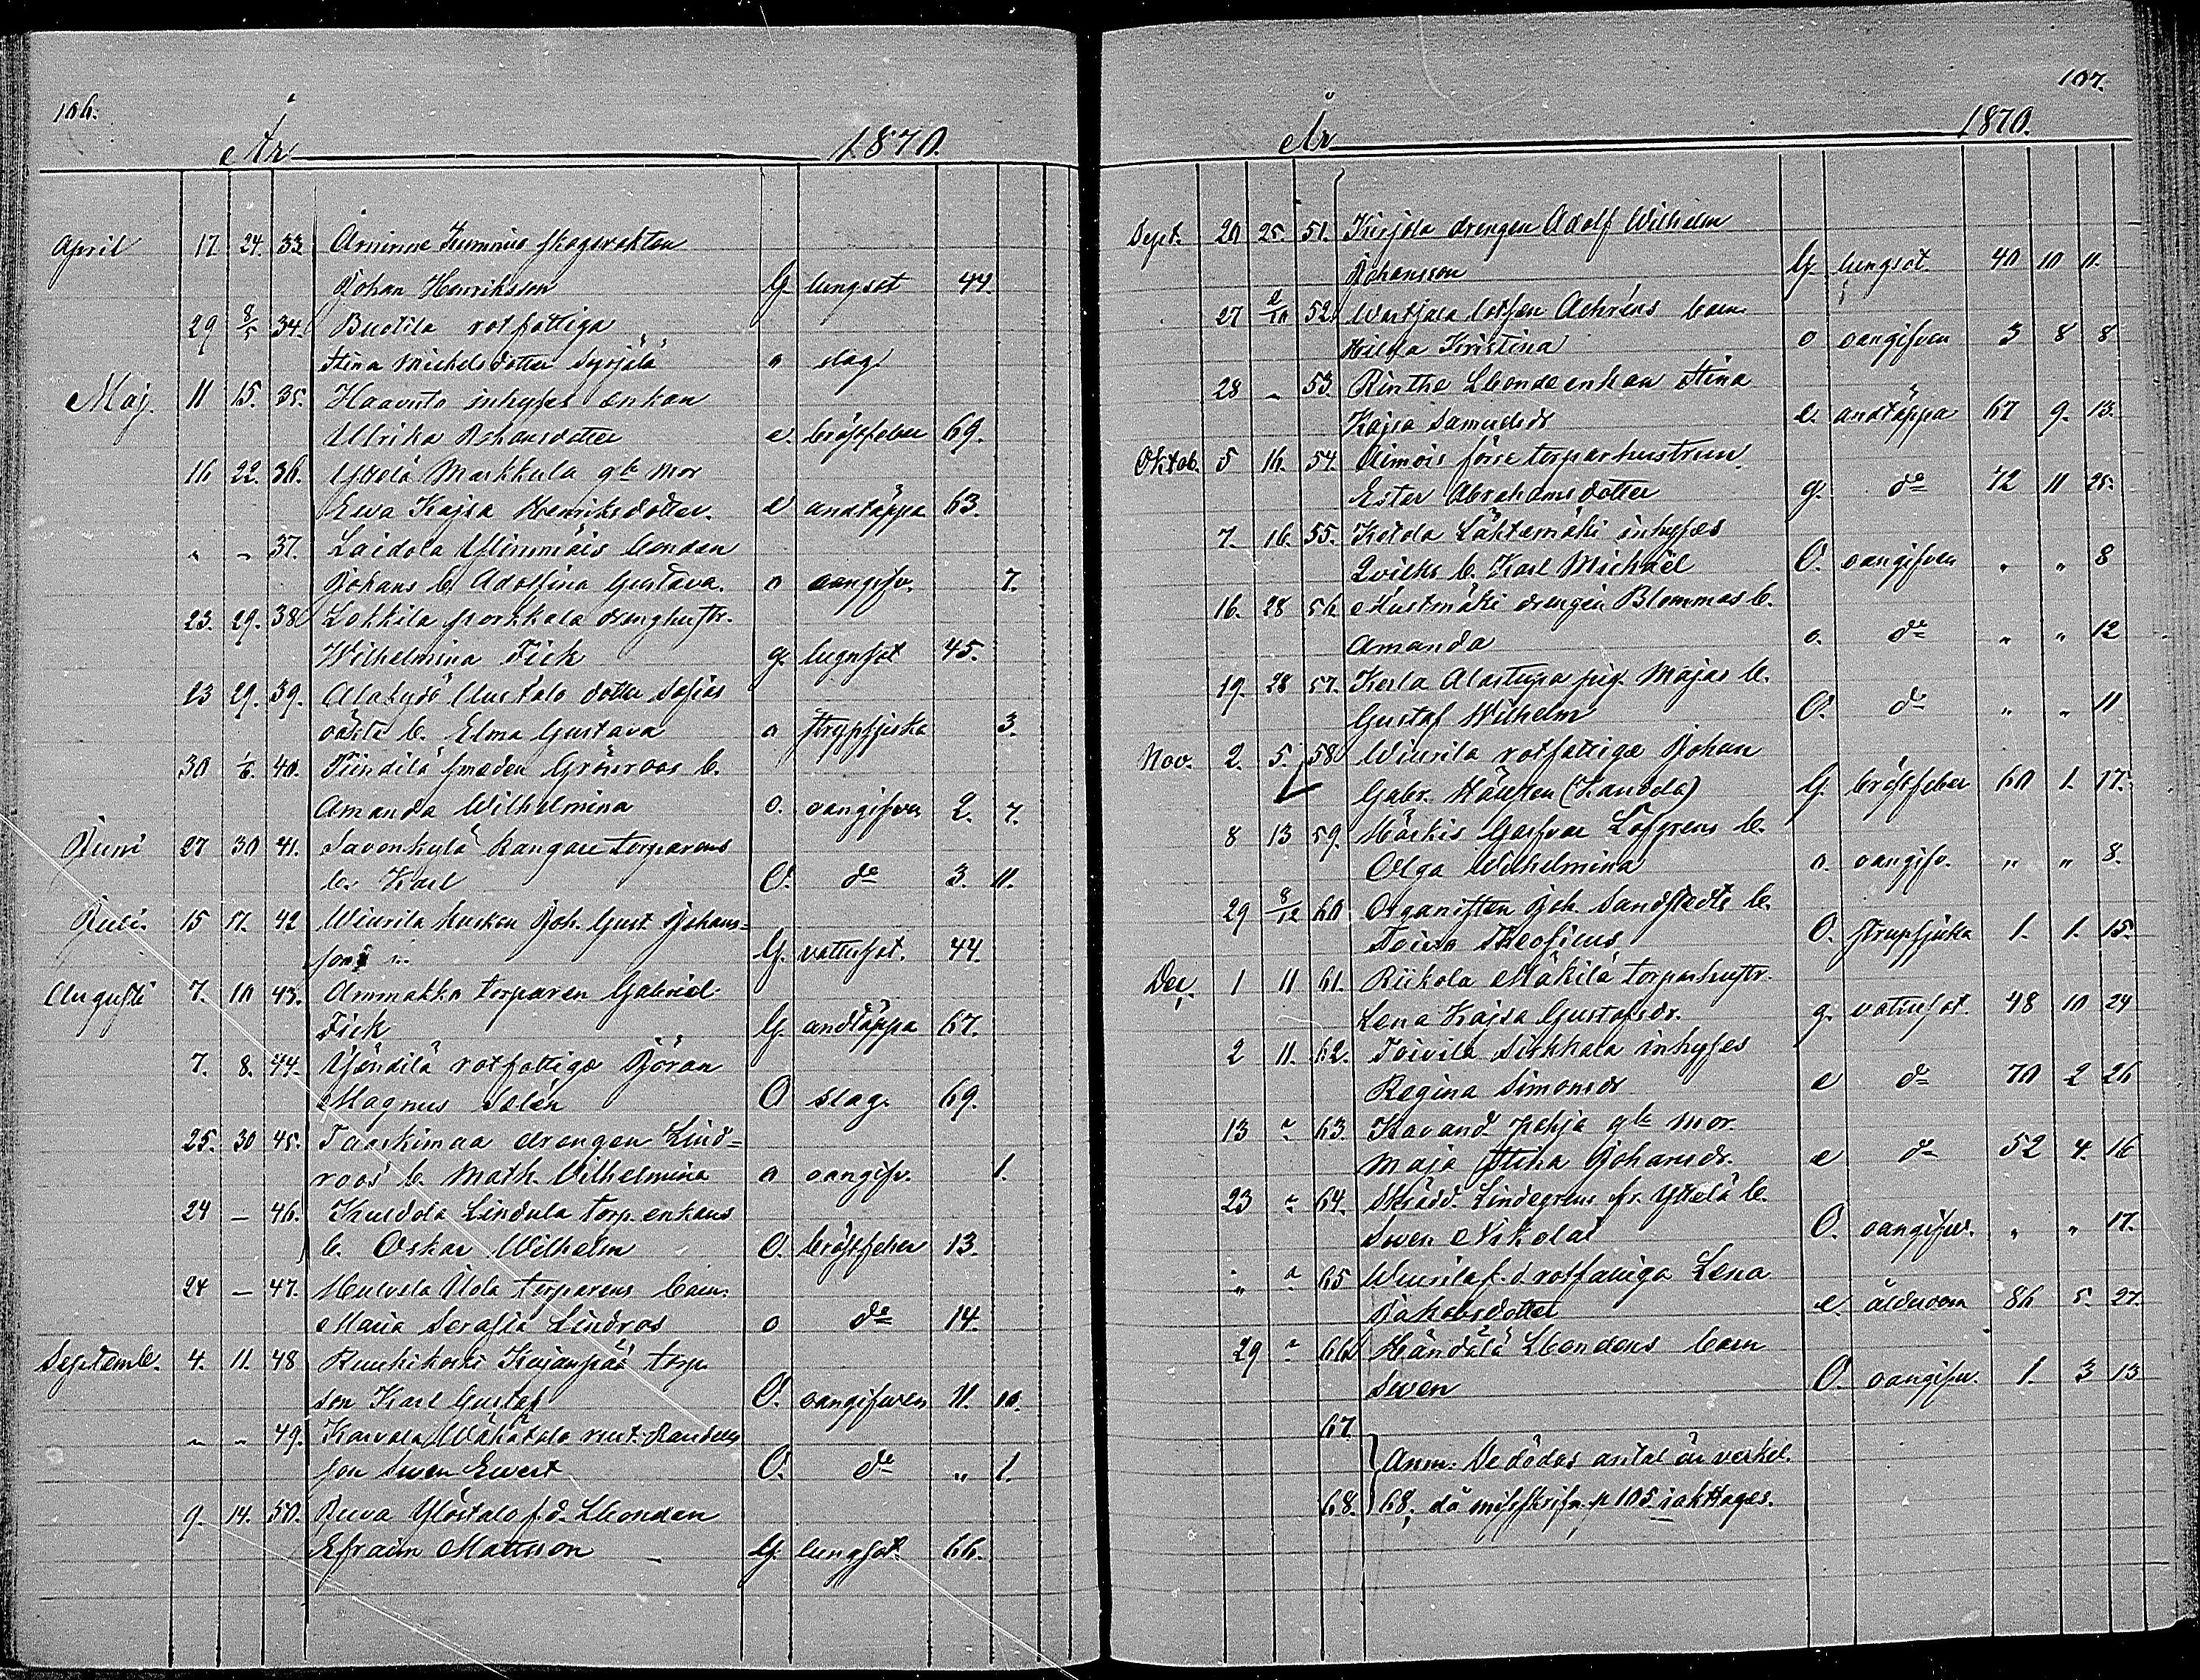 106.
År 1870.
April 17. 24. 33. Arninne skogsvakten
Johan Henriksson G. lungsot 44.
29 8/5 34. rotfattiga
Stina Michelsdotter o slag.
Maj. 11 15. 35. Haavisto inhyses enkan
Ulrika Johansdotter e. bröstfeber 69.
16 22. 36. Yttelä Markkula gle mor
Ewa Kajsa Henriksdotter. e andtäppa 63.
" " 37. Laidola bonden
Johans b. Adolfina Gustava. o oangifv. 7.
23. 29. 38 Lokkila porkkala drenghustr.
Wilhelmina Fick g. lugnsot 45.
23 29. 39. dotter Sofias
oäkta b. Elma Gustava o strypsjuka 3.
30 1/6. 40. smeden Grönroos b.
Amanda Wilhelmina o. oangifven 2. 7.
Juni 27 30 41. Savonkylä Kangare torparens
b. Karl O. do 3. 11.
Juli. 15 17. 42 Wiurila kusken Joh. Gust Johans=
son G. vattusot. 44.
Augusti 7. 10 43. Ammakka torparen Gabriel
Fick G. andtäppa 67.
7. 8. 44. rotfattige Jöran
Magnus Salén O slag. 69.
25. 30 45. drengen Lind=
roos b. Math. Vilhelmina o oangifv. 1.
24 — 46. Lindula torp. enkans
b. Oskar Wilhelm O. bröstfeber 13.
24 — 47. torparens barn.
Maria Serafia Lindros o do 14.
Septemb. 4. 11. 48 Ruuhikoski Kajanpää torp
son Karl Gustaf O. oangifwen 11. 10.
" " 49. Karvala Wähätalo
son Swen Ewert O. do " 1.
9. 14. 50. Juva Ylöstalo f.d. bonden
Efraim Mattsson G. lungsot 66.
107.
År 1870.
Sept. 20 25. 51. drengen Adolf Wilhelm
Johansson G. lungsot. 40 10 11.
27 2/10 52. Wartsala lotsen Achréns barn.
Hilda Kristina o oangifven 3 8 8
28 " 53. Rinthe bondeenkan Stina
Kajsa Samuelsdr e. andtäppa 67 9. 13.
Oktob. 5 16. 54. torparhustrun
Ester Abrahamsdotter g. do 72 11 25.
7. 16. 55. Ketola Lähtemäki inhyses
b. Karl Michäel O. oangifven " " 8
16. 28 56 Mustmäki drengen Blommas b.
Amanda o. do " " 12
19. 28 57. Kerla Alastupa pig. Majas b.
Gustaf Wilhelm O. do " " 11
Nov. 2. 5. 58 Wiurila rotfattige Johan
Gabr. G. bröstfeber 60 1. 17.
8 13 59. Märkis Löfgrens b.
Olga Wilhelmina o. oangifv. " " 8.
29 8/12 60 Organisten Joh. Sandstedts b.
Toivo Theofilus O. strupsjuka 1. 1. 15.
Dec. 1 11 61. Riikola Mäkilä torparhustr.
Lena Kajsa Gustafsdr. g. vattusot. 48 10 24
2 11. 62. Toivila Sirkkala inhyses
Regina Simonsdr e do 70 2 26
13 " 63. gle mor
Maja Stina Johansdr. e do 52 4. 16
23 " 64. Skrädd. Lindegrens fr. Yttelä b.
Swen Nikolai O. oangifv. " " 17.
" " 65 f.d rotfattiga Lena
Jakobsdotter e. ålderdom 86 5. 27.
29 " 66 Händälä bondens barn
Swen O. oangifv. 1. 3 13
67.
Anm. De dödas antal är verkel.
68. 68, då misskrifn. p 105 iakttages.